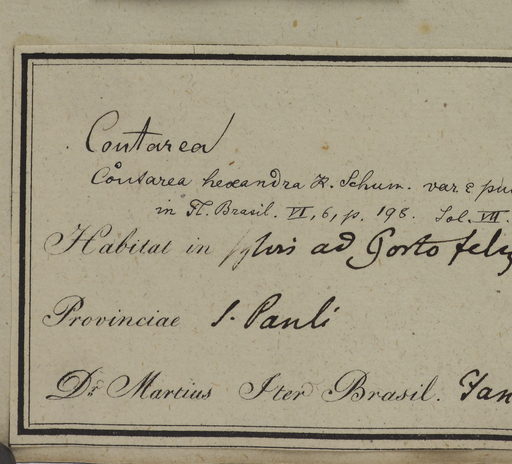 Coutarea
Coutarea hexandra K. Schum. var ε pu
in Fl. Brasil. VI, 6, p. 198. Tol. VII
Habitat in sylvis ad Porto feliz
Provinciae S. Pauli
Dr. Martius Iter Brasil. Jan